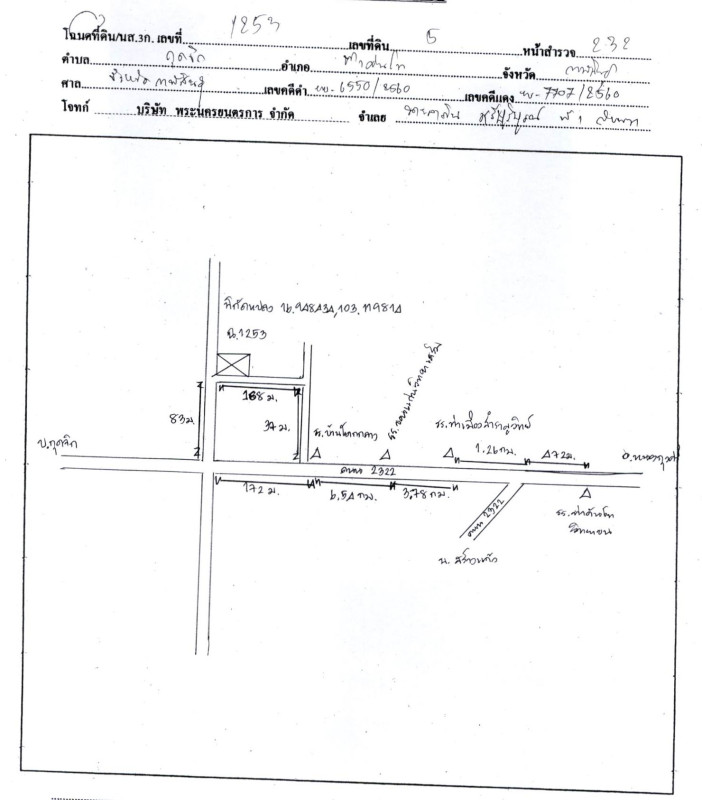 โฉนดที่ดิน/นส.3ก. เลขที่ 1253 เลขที่ดิน 5 หน้าสำรวจ 232
ตำบล กุดจิก อำเภอ ท่าคันโท จังหวัด กาฬสินธุ์
ศาล จังหวัดกาฬสินธุ์ เลขคดีดำ ผบ- 6550/2560 เลขคดีแดง ผบ- 7707/2560
โจทก์ บริษัท พระนครยนตรการ จำกัด จำเลย
พิกัดแปลง 16.948434,103.
ฉ.1253
168 ม.
83ม.
34 ม.
บ.กุดจิก
รร.บ้านโคกกลาง
รร.
รร.ท่าเมืองสำราญวิทย์
1.26กม.
472ม.
ถนน 2322
172 ม.
6.54 กม.
3.78 กม.
ถนน 2322
รร.ท่าคันโท
วิทยายน